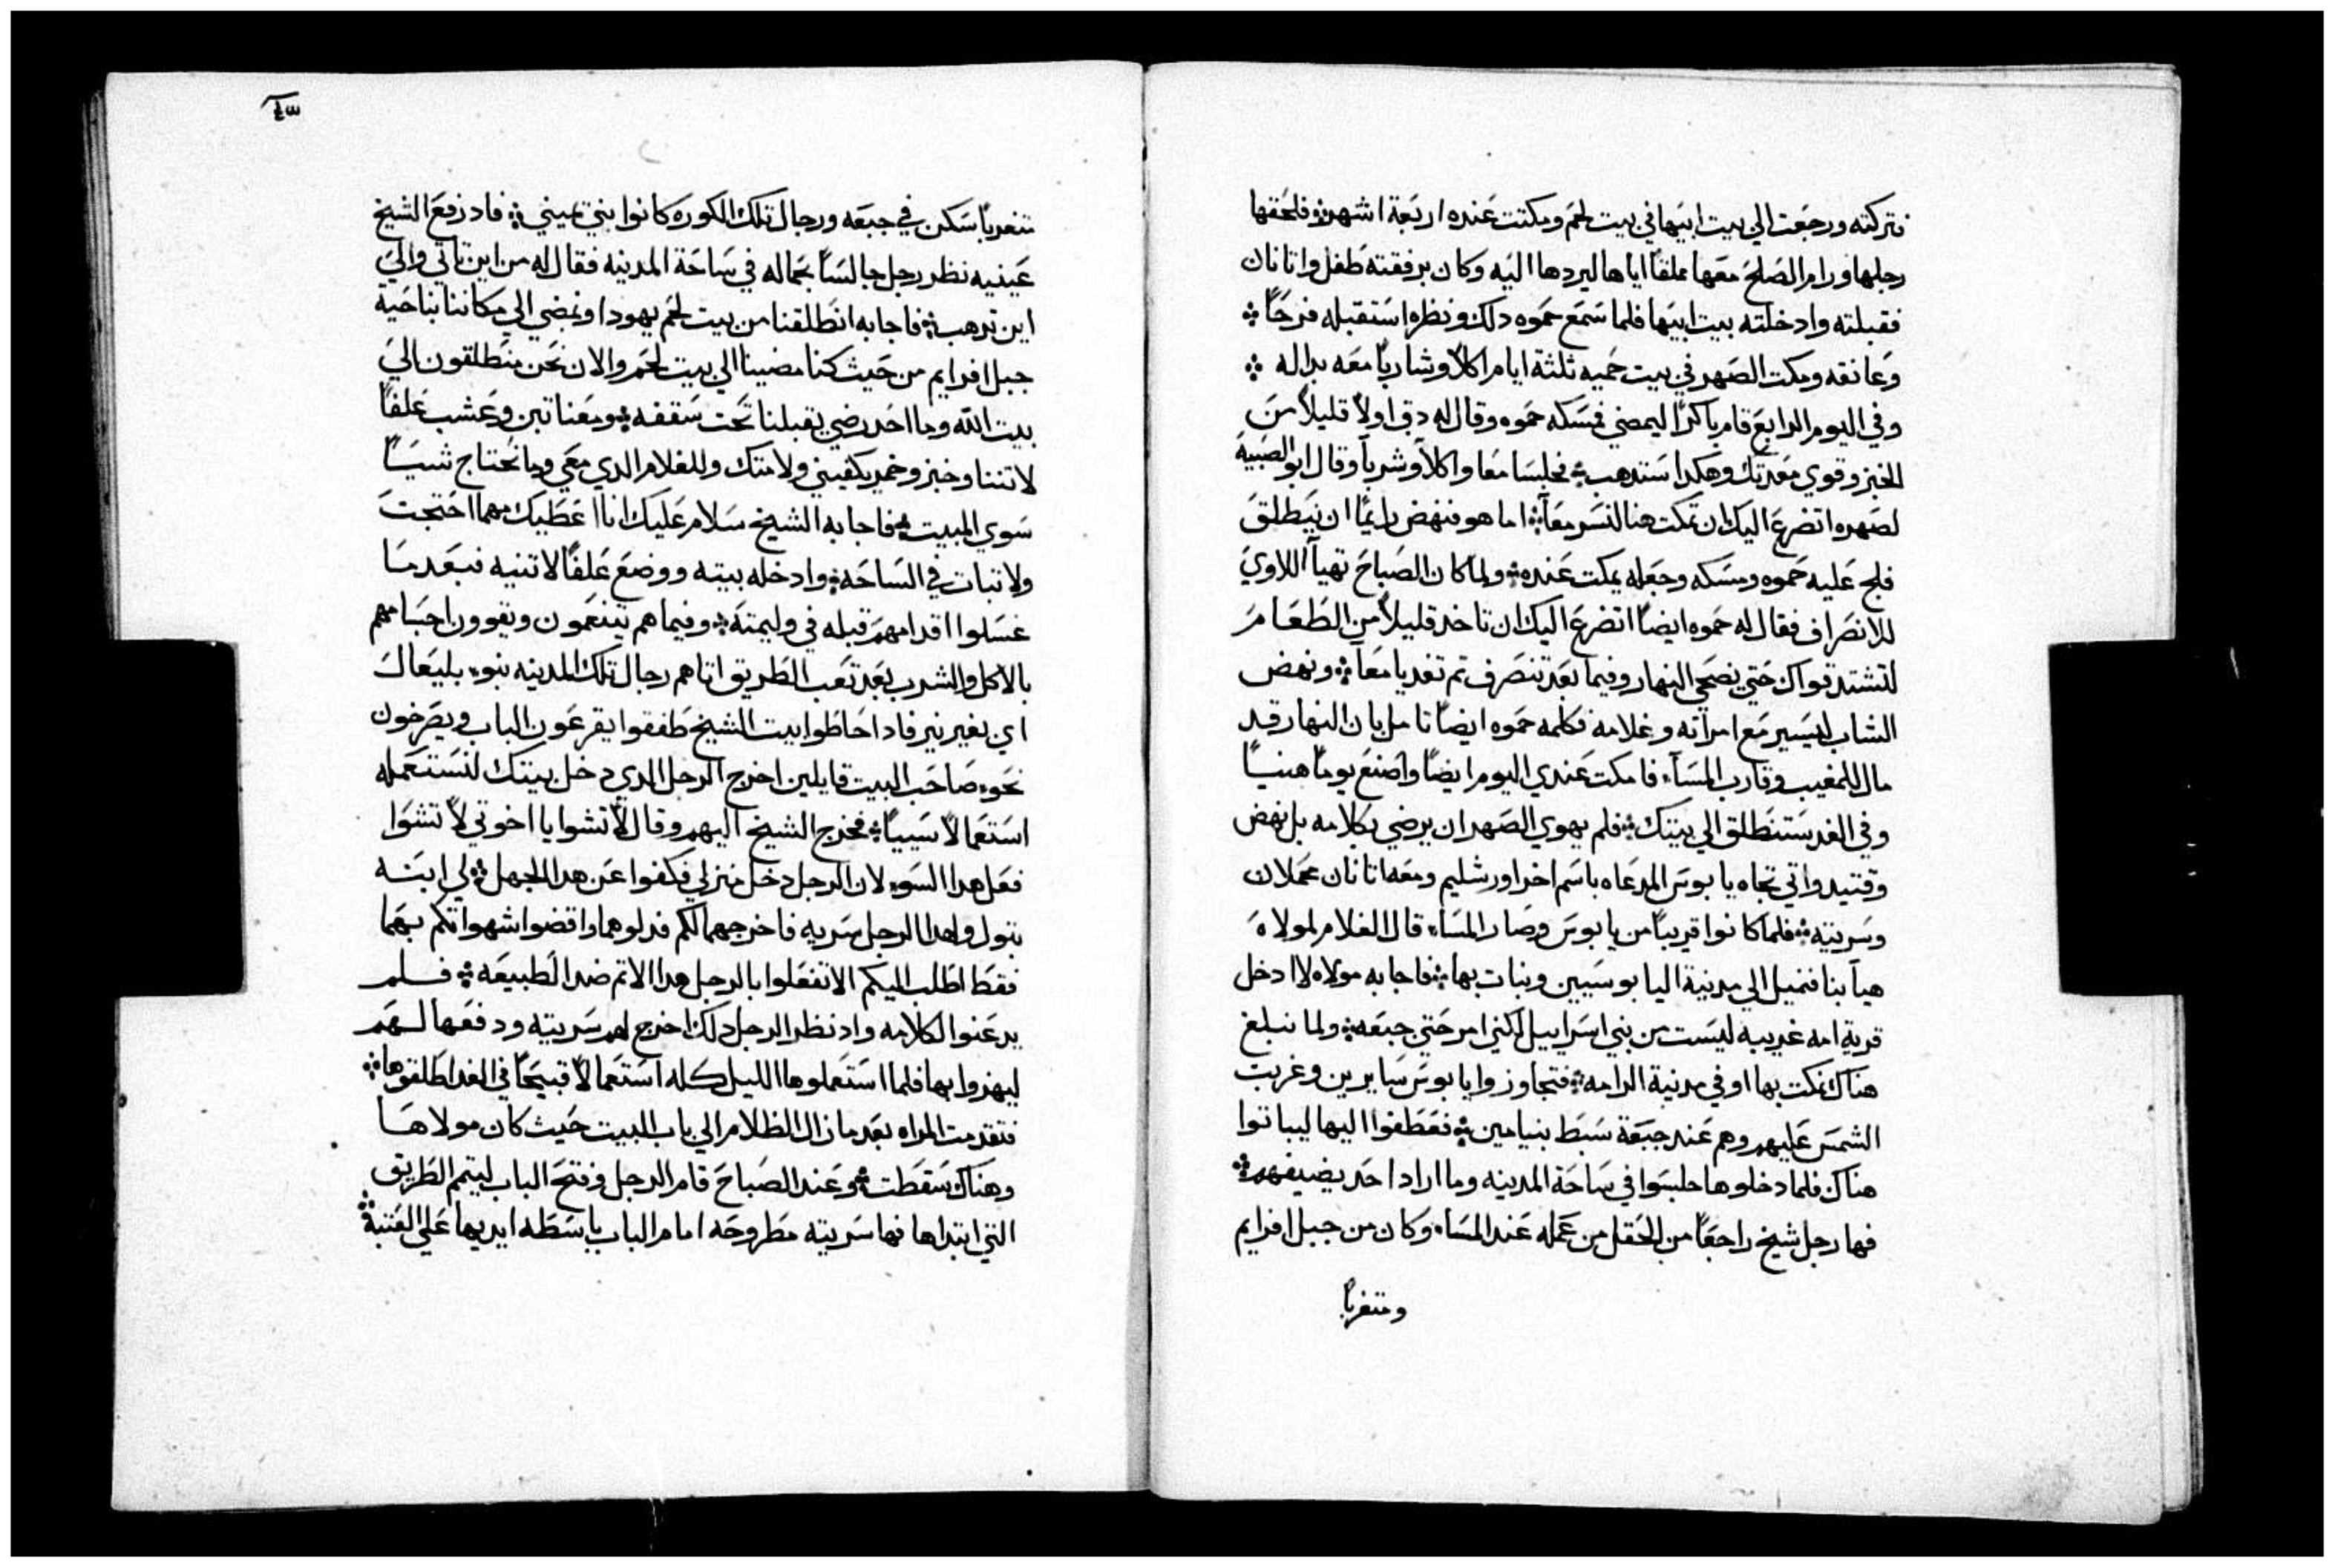 فتركته ورجعت الي بيت ابيها في بيت لحم ومكتت عنده اربعة اشهر فلحقها
رجلها ورام الصلح معها مملقاً اياها ليردها اليه وكان برفقته طفل واتانان
فقبلته وادخلته بيت ابيها فلما سمع حموه دلك ونظره استقبله فرحاً
وعانقه ومكت الصهر في بيت حميه ثلثة ايام اكلاً وشارباً معه بداله
وفي اليوم الرابع قام باكراً ليمضي فمسكه حموه وقال له دق اولاً قليلاً من
الخبز وقوي معدتك وهكدا ستدهب فجلسا معا واكلاً وشربا وقال ابو الصبية
لصهره اتضرع اليك ان تمكت هنا لنسر معاً اما هو فنهض رايماً ان ينطلق
فلج عليه حموه ومسكه وجعله يمكت عنده ولما كان الصباح تهيا اللاوي
للانصراف فقال له حموه ايضاً اتضرع اليك ان تاخد قليلاً من الطعام
لتشتد قواك حتي يضحي النهار وفيما بعد تنصرف تم تغديا معاً ونهض
الشاب ليسير مع امراته وغلامه فكلمه حموه ايضاً تامل بان النهار قد
مال للمغيب وقارب المساء فامكت عندي اليوم ايضاً واصنع يوماً هنياً
وفي الغد ستنطلق الي بيتك فلم يهوي الصهر ان يرضي بكلامه بل نهض
وقتيد واتي تجاه يابوس المدعاه باسم اخر اورشليم ومعه اتانان محملان
وسريته فلما كانوا قريباً من يابوس وصار المساء قال الغلام لمولاه
هيا بنا فنميل الي مدينة اليابوسيين ونبات بها فاجابه مولاه لا ادخل
قرية امه غريبه ليست من بني اسراييل لكني امر حتي جبعه ولما نبلغ
هناك نمكت بها او في مدينة الرامه فتجاوزوا يابوس سايرين وغربت
الشمس عليهم وهم عند جبعة سبط بنيامين فعطفوا اليها ليباتوا
هناك فلما دخلوها جلسوا في ساحة المدينه وما اراد احد يضيفهم
فها رجل شيخ راجعاً من الحقل من عمله عند المساء وكان من جبل افرايم
ومتغرباً
٤٣
متغرباً سكن في جبعه ورجال تلك الكوره كانوا بني يميني فاد رفع الشيخ
عينيه نظر رجل جالساً بحماله في ساحة المدينه فقال له من اين تاتي والي
اين تدهب فاجابه انطلقنا من بيت لحم يهودا ونمضي الي مكاننا بناحية
جبل افرايم من حيث كنا مضينا الي بيت لحم والان نحن منطلقون الي
بيت الله وما احد رضي يقبلنا تحت سقفه ومعنا تبن وعشب علفاً
لاتننا وخبز وخمر يكفيني ولامتك وللغلام الدي معي وما نحتاج شيياً
سوي المبيت فاجابه الشيخ سلام عليك انا اعطيك مهما احتجت
ولا تبات في الساحه وادخله بيته ووضع علفاً لاتنيه فبعد ما
غسلوا اقدامهم قبله في وليمته وفيما هم يتنعمون ويقوون اجسامهم
بالاكل والشرب بعد تعب الطريق اتاهم رجال تلك المدينه بنوء بليعال
اي بغير نير فاد احاطوا بيت الشيخ طفقوا يقرعون الباب ويصرخون
نحو صاحب البيت قايلين اخرج الرجل الدي دخل بيتك لنستعمله
استعمالاً سيياً فخرج الشيخ اليهم وقال لا تشوا يا اخوتي لا تشوا
فعل هدا السوء لان الرجل دخل منزلي فكفوا عن هدا الجهل لي ابنه
بتول ولهدا الرجل سريه فاخرجهما لكم فدلوهما واقضوا شهواتكم بهما
فقط اطلب اليكم الا تفعلوا بالرجل هدا الاتم ضد الطبيعه فلم
يدعنوا لكلامه واد نظر الرجل دلك اخرج لهم سريته ودفعها لهم
ليهزوا بها فلما استعملوها الليل كله استعمالاً قبيحاً في الغد اطلقوها
فتقدمت المراه بعد ما زال الظلام الي باب البيت حيث كان مولاها
وهناك سقطت وعند الصباح قام الرجل وفتح الباب ليتم الطريق
التي ابتداها فها سريته مطروحه امام الباب باسطه ايديها علي العتبة